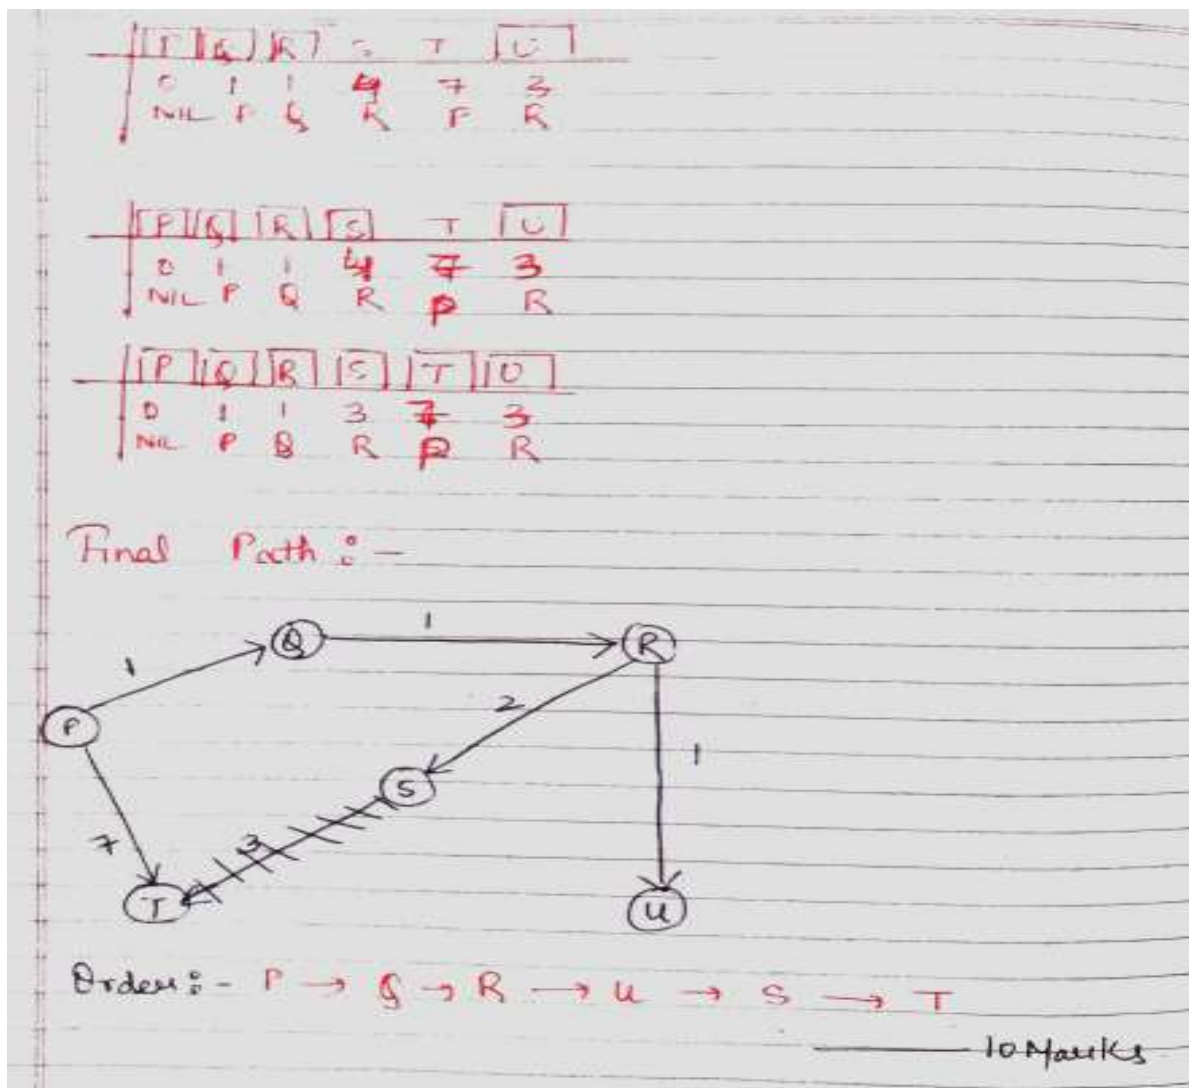 P Q R S T U
0 1 1 4 7 3
NIL P Q R P R
P Q R S T U
0 1 1 4 7 3
NIL P Q R P R
P Q R S T U
0 1 1 3 7 3
NIL P Q R P R
Final Path :-
1 Q 1 R
P 2
S 1
7 3
T U
Order :- P → Q → R → U → S → T
10 Marks